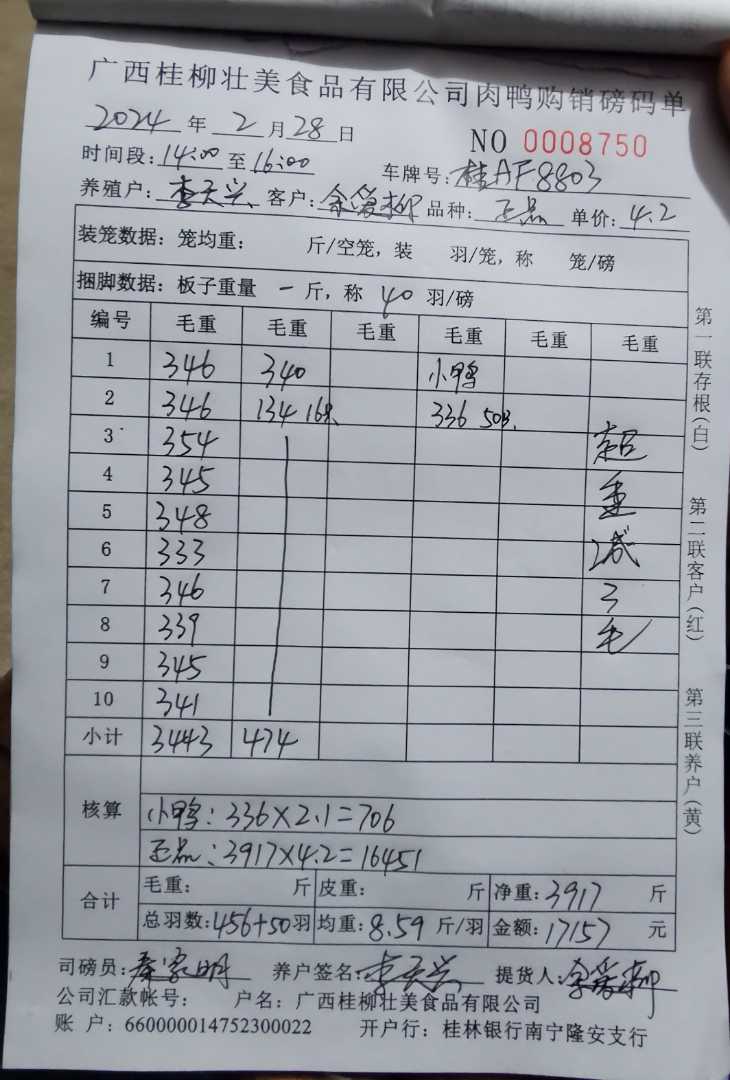 广西桂柳壮美食品有限公司肉鸭购销磅码单
2024 年 2 月 28 日 NO 0008750
时间段: 14:00 至 16:00 车牌号: 桂AF8803
养殖户: 李天兴 客户: 品种: 正品 单价: 4.2
装笼数据: 笼均重: 斤/空笼, 装 羽/笼, 称 笼/磅
捆脚数据: 板子重量 一 斤, 称 40 羽/磅
编号 毛重 毛重 毛重 毛重 毛重 毛重
1 346 340 小鸭
2 346 134 16只 336 50只
3 354
4 345 重
5 348
6 333 减
7 346 了
8 339 毛
9 345
10 341
小计 3443 474
核算
小鸭: 336×2.1=706
正品: 3917×4.2=16451
合计
毛重: 斤 皮重: 斤 净重: 3917 斤
总羽数: 456+50 羽 均重: 8.59 斤/羽 金额: 17157 元
司磅员: 秦家明 养户签名: 李天兴 提货人:
公司汇款帐号: 户名: 广西桂柳壮美食品有限公司
账 户: 660000014752300022 开户行: 桂林银行南宁隆安支行
第一联存根(白)
第二联客户(红)
第三联养户(黄)